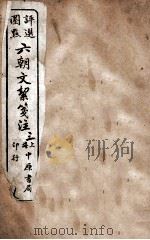 評選
圈點
六朝文絜箋注
三
上海中原書局
印行